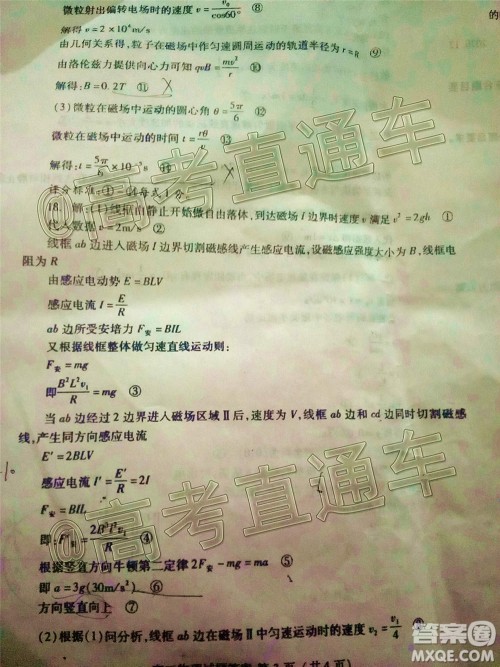 微粒射出偏转电场时的速度 v = v₀/cos60° ⑧
解得 v = 2 × 10⁴ m/s
由几何关系得,粒子在磁场中作匀速圆周运动的轨道半径为 r = R ⑨
由洛伦兹力提供向心力可知 qvB = mv²/r ⑩
解得: B = 0.2T ⑪
(3)微粒在磁场中运动的圆心角 θ = 5π/6 ⑫
微粒在磁场中运动的时间 t = rθ/v ⑬
解得: t = 5π/6 × 10⁻⁵
18. 解: (1)线框由静止开始做自由落体,到达磁场 I 边界时速度 v 满足 v² = 2gh ①
代入数据 v = 2m/s ②
线框 ab 边进入磁场 I 边界切割磁感线产生感应电流,设磁感应强度大小为 B,线框电
阻为 R
由感应电动势 E = BLV
感应电流 I = E/R
ab 边所受安培力 F安 = BIL
又根据线框整体做匀速直线运动则:
F安 = mg
即 B²L²v₁/R = mg ③
当 ab 边经过 2 边界进入磁场区域 Ⅱ 后,速度为 V,线框 ab 边和 cd 边同时切割磁感
线,产生同方向感应电流
E′ = 2BLV
感应电流 I′ = E′/R = 2I
F安 = BIL
④
根据竖直方向牛顿第二定律 2F安 - mg = ma ⑤
即 a = 3g(30m/s²) ⑥
方向竖直向上 ⑦
(2)根据(1)问分析,线框 ab 边在磁场 Ⅱ 中匀速运动时的速度 v₂ = v₁/4
@高考直通车
@高考直通车
答案圈
MXQE.COM